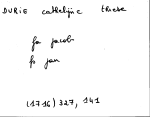 DURIE cathelijne therese
fa jacob
fs jan
(1716) 327, 141